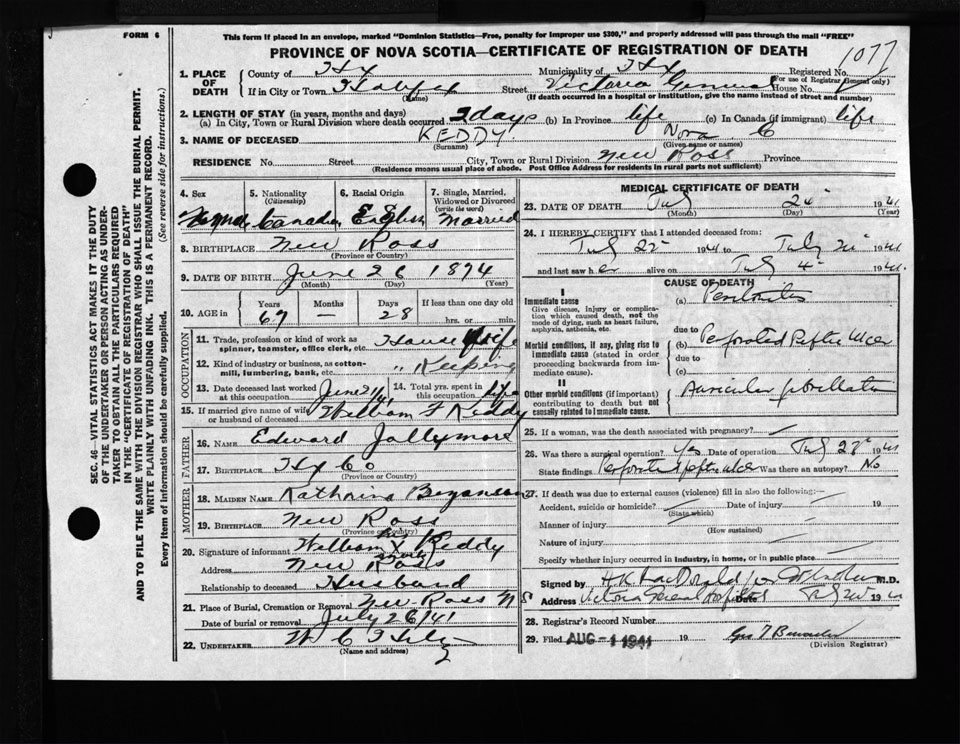 FORM 6
This form if placed in an envelope, marked "Dominion Statistics—Free, penalty for improper use $300," and properly addressed will pass through the mail "FREE"
PROVINCE OF NOVA SCOTIA—CERTIFICATE OF REGISTRATION OF DEATH
SEC. 46—VITAL STATISTICS ACT MAKES IT THE DUTY
OF THE UNDERTAKER OR PERSON ACTING AS UNDER-
TAKER TO OBTAIN ALL THE PARTICULARS REQUIRED
IN THE "CERTIFICATE OF REGISTRATION OF DEATH"
AND TO FILE THE SAME WITH THE DIVISION REGISTRAR WHO SHALL ISSUE THE BURIAL PERMIT.
WRITE PLAINLY WITH UNFADING INK. THIS IS A PERMANENT RECORD.
Every item of Information should be carefully supplied. (See reverse side for instructions.)
1. PLACE OF DEATH County of Hx Municipality of Hx Registered No. 1077
(For use of Registrar General only)
If in City or Town Halifax Street Victoria General House No.
(Name) (If death occurred in a hospital or institution, give the name instead of street and number)
2. LENGTH OF STAY (in years, months and days)
(a) In City, Town or Rural Division where death occurred 2 days (b) In Province life (c) In Canada (if immigrant) life
3. NAME OF DECEASED KEDDY Nora C
(Surname) (Given name or names)
RESIDENCE No. Street City, Town or Rural Division New Ross Province
(Residence means usual place of abode. Post Office Address for residents in rural parts not sufficient)
4. Sex 5. Nationality (Citizenship) 6. Racial Origin 7. Single, Married, Widowed or Divorced (write the word)
Female Canadian English Married
8. BIRTHPLACE New Ross
(Province or Country)
9. DATE OF BIRTH June 26 1874
(Month) (Day) (Year)
10. AGE in Years Months Days If less than one day old
67 — 28 hrs. or min.
OCCUPATION
11. Trade, profession or kind of work as spinner, teamster, office clerk, etc. House Wife
12. Kind of industry or business, as cotton-mill, lumbering, bank, etc. " Keeping
13. Date deceased last worked at this occupation June /41 14. Total yrs. spent in this occupation
15. If married give name of wife or husband of deceased William F Keddy
FATHER
16. NAME Edward Jollymore
17. BIRTHPLACE Hx Co
(Province or Country)
MOTHER
18. MAIDEN NAME Kathrina Bezanson
19. BIRTHPLACE New Ross
(Province or Country)
20. Signature of informant William F Keddy
Address New Ross
Relationship to deceased Husband
21. Place of Burial, Cremation or Removal New Ross N S
Date of burial or removal July 26/41
22. UNDERTAKER
(Name and address)
MEDICAL CERTIFICATE OF DEATH
23. DATE OF DEATH July 24 1941
(Month) (Day) (Year)
24. I HEREBY CERTIFY that I attended deceased from:
July 22 1941 to July 1941
and last saw her alive on July 1941
CAUSE OF DEATH
I
Immediate cause (a) Peritonitis
Give disease, injury or complication which caused death, not the mode of dying, such as heart failure, asphyxia, asthenia, etc.
due to
Morbid conditions, if any, giving rise to immediate cause (stated in order proceeding backwards from immediate cause). (b) Perforated Peptic Ulcer
due to
(c)
II
Other morbid conditions (if important) contributing to death but not causally related to immediate cause. Auricular fibrillation
25. If a woman, was the death associated with pregnancy?
26. Was there a surgical operation? Yes Date of operation July 1941
State findings Perforated peptic ulcer Was there an autopsy? No
27. If death was due to external causes (violence) fill in also the following:—
Accident, suicide or homicide? Date of injury 19
(State which)
Manner of injury
(How sustained)
Nature of injury
Specify whether injury occurred in industry, in home, or in public place
Signed by H K MacDonald M.D.
Address Victoria General Hospital Date July 1941
28. Registrar's Record Number
29. Filed AUG - 1 1941 19
(Division Registrar)